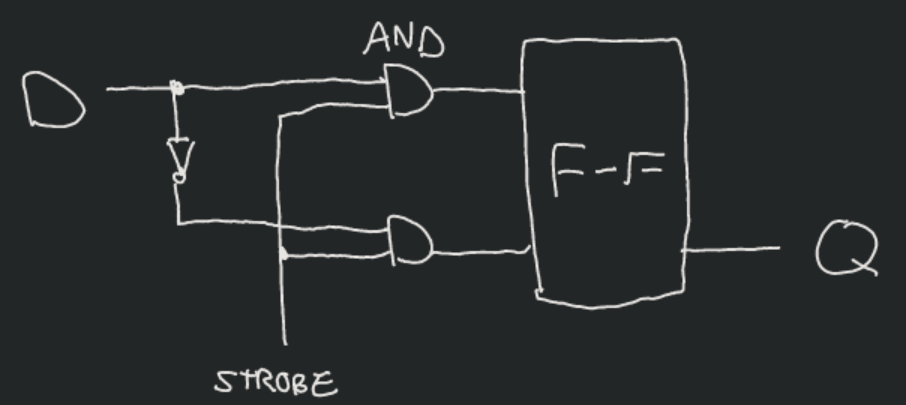 AND
D
F-F
Q
STROBE